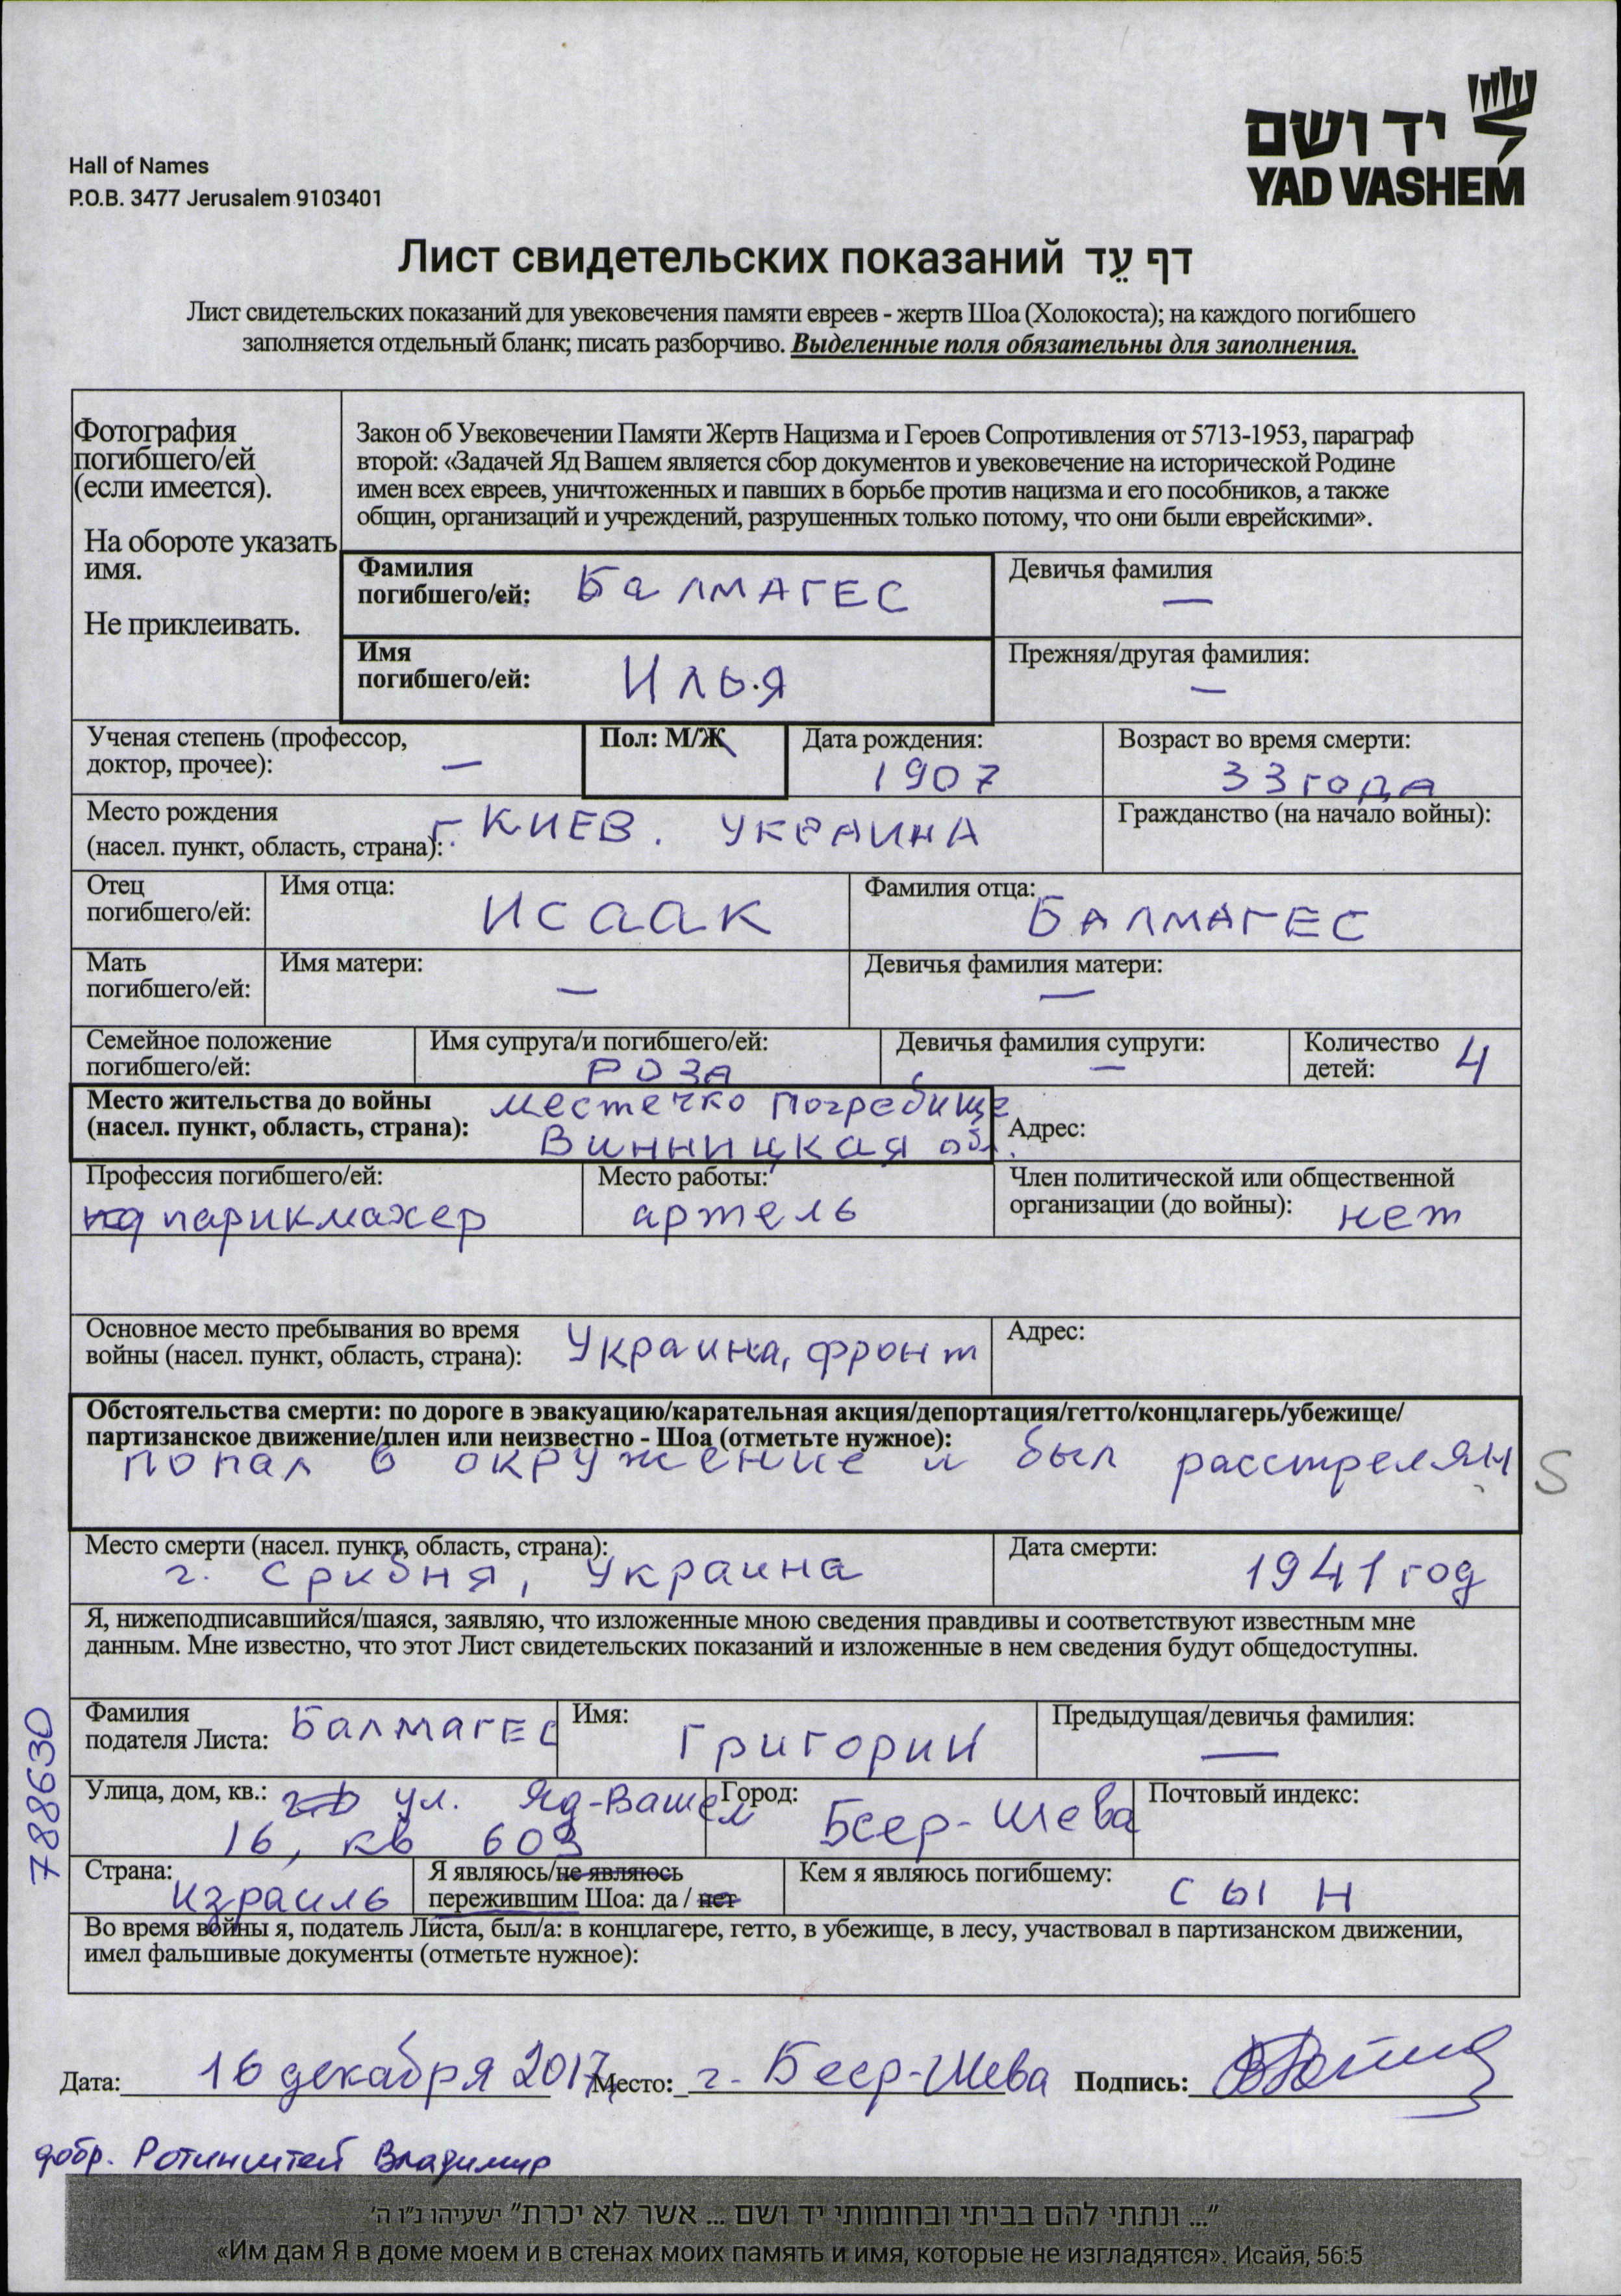 Hall of Names
P.O.B. 3477 Jerusalem 9103401
יד ושם
YAD VASHEM
Лист свидетельских показаний דף עֵד
Лист свидетельских показаний для увековечения памяти евреев - жертв Шоа (Холокоста); на каждого погибшего
заполняется отдельный бланк; писать разборчиво. Выделенные поля обязательны для заполнения.
Фотография
погибшего/ей
(если имеется).
На обороте указать
имя.
Не приклеивать.
Закон об Увековечении Памяти Жертв Нацизма и Героев Сопротивления от 5713-1953, параграф
второй: «Задачей Яд Вашем является сбор документов и увековечение на исторической Родине
имен всех евреев, уничтоженных и павших в борьбе против нацизма и его пособников, а также
общин, организаций и учреждений, разрушенных только потому, что они были еврейскими».
Фамилия
погибшего/ей: БаЛМАГЕС
Девичья фамилия
—
Имя
погибшего/ей: Илья
Прежняя/другая фамилия:
—
Ученая степень (профессор,
доктор, прочее): —
Пол: М/Ж
Дата рождения:
1907
Возраст во время смерти:
33 года
Место рождения
(насел. пункт, область, страна): г. КИЕВ. УКРАИНА
Гражданство (на начало войны):
Отец
погибшего/ей:
Имя отца:
Исаак
Фамилия отца:
БАЛМАГЕС
Мать
погибшего/ей:
Имя матери:
—
Девичья фамилия матери:
—
Семейное положение
погибшего/ей:
Имя супруга/и погибшего/ей:
РОЗА
Девичья фамилия супруги:
—
Количество
детей: 4
Место жительства до войны
(насел. пункт, область, страна):
местечко Погребище
Винницкая обл.
Адрес:
Профессия погибшего/ей:
парикмахер
Место работы:
артель
Член политической или общественной
организации (до войны): нет
Основное место пребывания во время
войны (насел. пункт, область, страна): Украина, фронт
Адрес:
Обстоятельства смерти: по дороге в эвакуацию/карательная акция/депортация/гетто/концлагерь/убежище/
партизанское движение/плен или неизвестно - Шоа (отметьте нужное):
попал в окружение и был расстрелян S
Место смерти (насел. пункт, область, страна):
г. Срибня, Украина
Дата смерти:
1941 год
Я, нижеподписавшийся/шаяся, заявляю, что изложенные мною сведения правдивы и соответствуют известным мне
данным. Мне известно, что этот Лист свидетельских показаний и изложенные в нем сведения будут общедоступны.
Фамилия
подателя Листа: Балмагес
Имя:
Григорий
Предыдущая/девичья фамилия:
—
Улица, дом, кв.: ул. Яд-Вашем
16, кв 603
Город:
Беер-Шева
Почтовый индекс:
Страна:
Израиль
Я являюсь/не являюсь
пережившим Шоа: да / нет
Кем я являюсь погибшему:
сын
Во время войны я, податель Листа, был/а: в концлагере, гетто, в убежище, в лесу, участвовал в партизанском движении,
имел фальшивые документы (отметьте нужное):
7888630
Дата: 16 декабря 2017 Место: г. Беер-Шева Подпись:
добр. Ротинштей Владимир
"... ונתתי להם בביתי ובחומותי יד ושם ... אשר לא יכרת" ישעיהו נ"ו ה'
«Им дам Я в доме моем и в стенах моих память и имя, которые не изгладятся». Исайя, 56:5